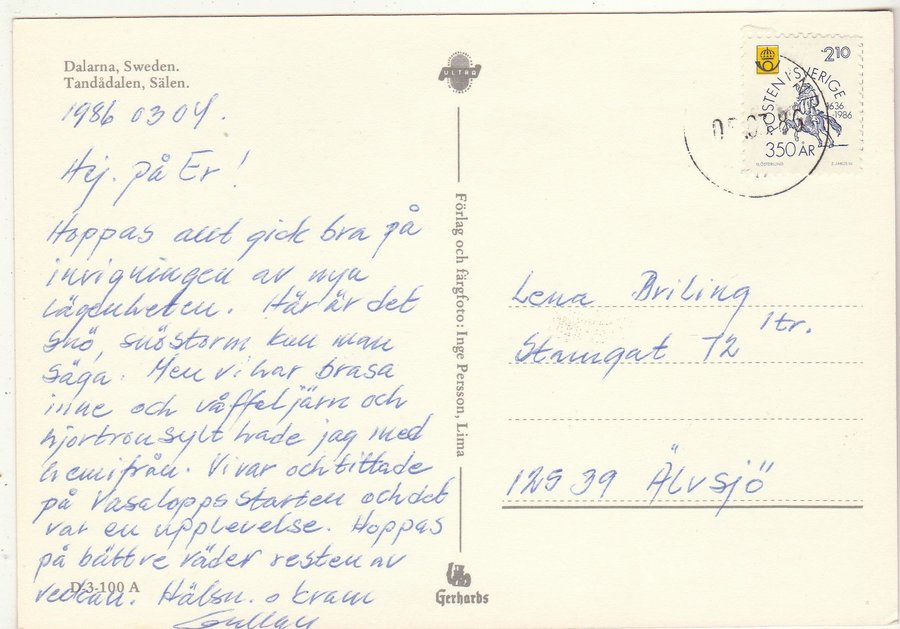 Dalarna, Sweden.
Tandådalen, Sälen.
1986 03 04.
Hej. på Er!
Hoppas allt gick bra på
invigningen av nya
lägenheten. Här är det
snö, snöstorm kan man
säga. Men vi har brasa
inne och våffeljärn och
hjortronsylt hade jag med
hemifrån. Vi var och tittade
på Vasaloppsstarten och det
var en upplevelse. Hoppas
på bättre väder resten av
veckan. Hälsn. o kram
Gullan
D 3-100 A
ULTRA
Förlag och färgfoto: Inge Persson, Lima
Gerhards
210
POSTEN I SVERIGE
1636
-1986
350 ÅR
Lena Briling
1tr.
Stamgat 72
125 39 Älvsjö